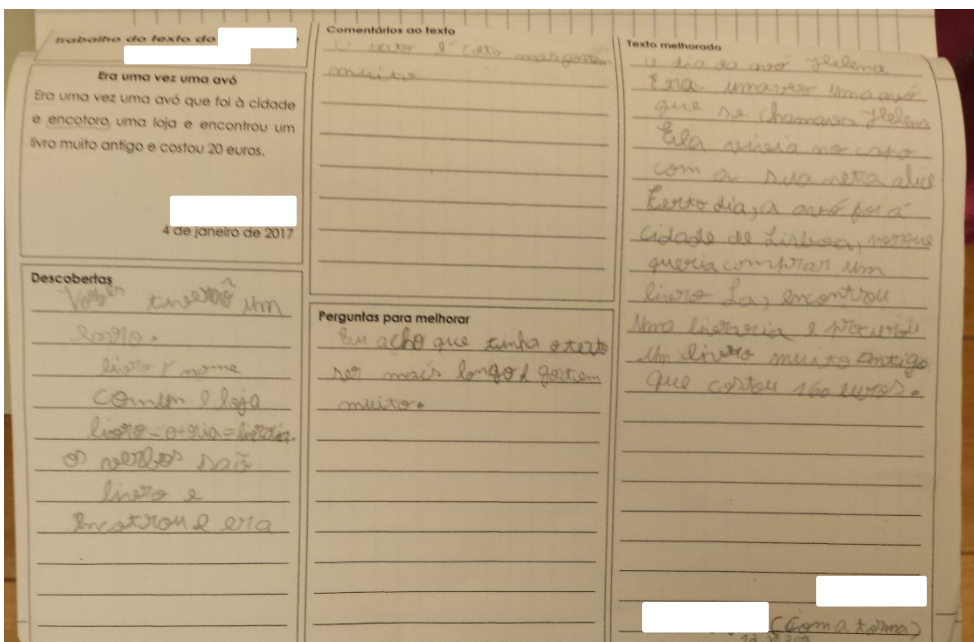 Trabalho do texto do
Era uma vez uma avó
Era uma vez uma avó que foi à cidade
e encotoro uma loja e encontrou um
livro muito antigo e costou 20 euros.
4 de janeiro de 2017
Descobertas
um
livro é nome
comum e loja
livro - o + ria = livraria.
os verbos são
livro e
encotrou e era
Comentários ao texto
O texto é curto mas
muito
Perguntas para melhorar
Eu acho que tinha o texto
ser mais longo e gostem
muito.
Texto melhorado
O dia da avó Helena
Era uma vez uma avó
que se chamava Helena
Ela vivia no
com a sua neta alice
Certo dia, a avó foi á
cidade de Lisboa, porque
queria comprar um
livro La, encontrou
uma livraria e
um livro muito antigo
que costou 160 euros.
(Com a turma)